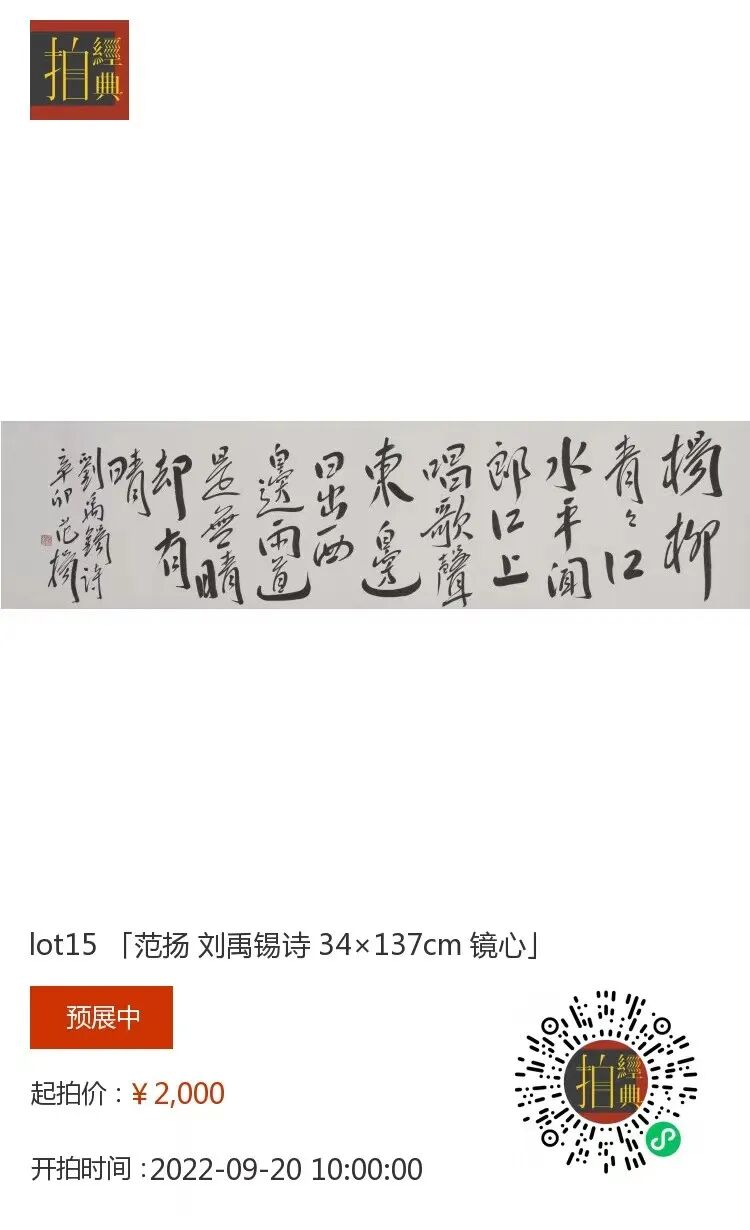 經典
拍
楊柳
青々江
水平聞
郎江上
唱歌聲
東邊
日出西
邊雨道
是無晴
却有
晴
劉禹錫詩
辛卯范揚
lot15 「范扬 刘禹锡诗 34×137cm 镜心」
预展中
起拍价：¥2,000
开拍时间：2022-09-20 10:00:00
經典
拍